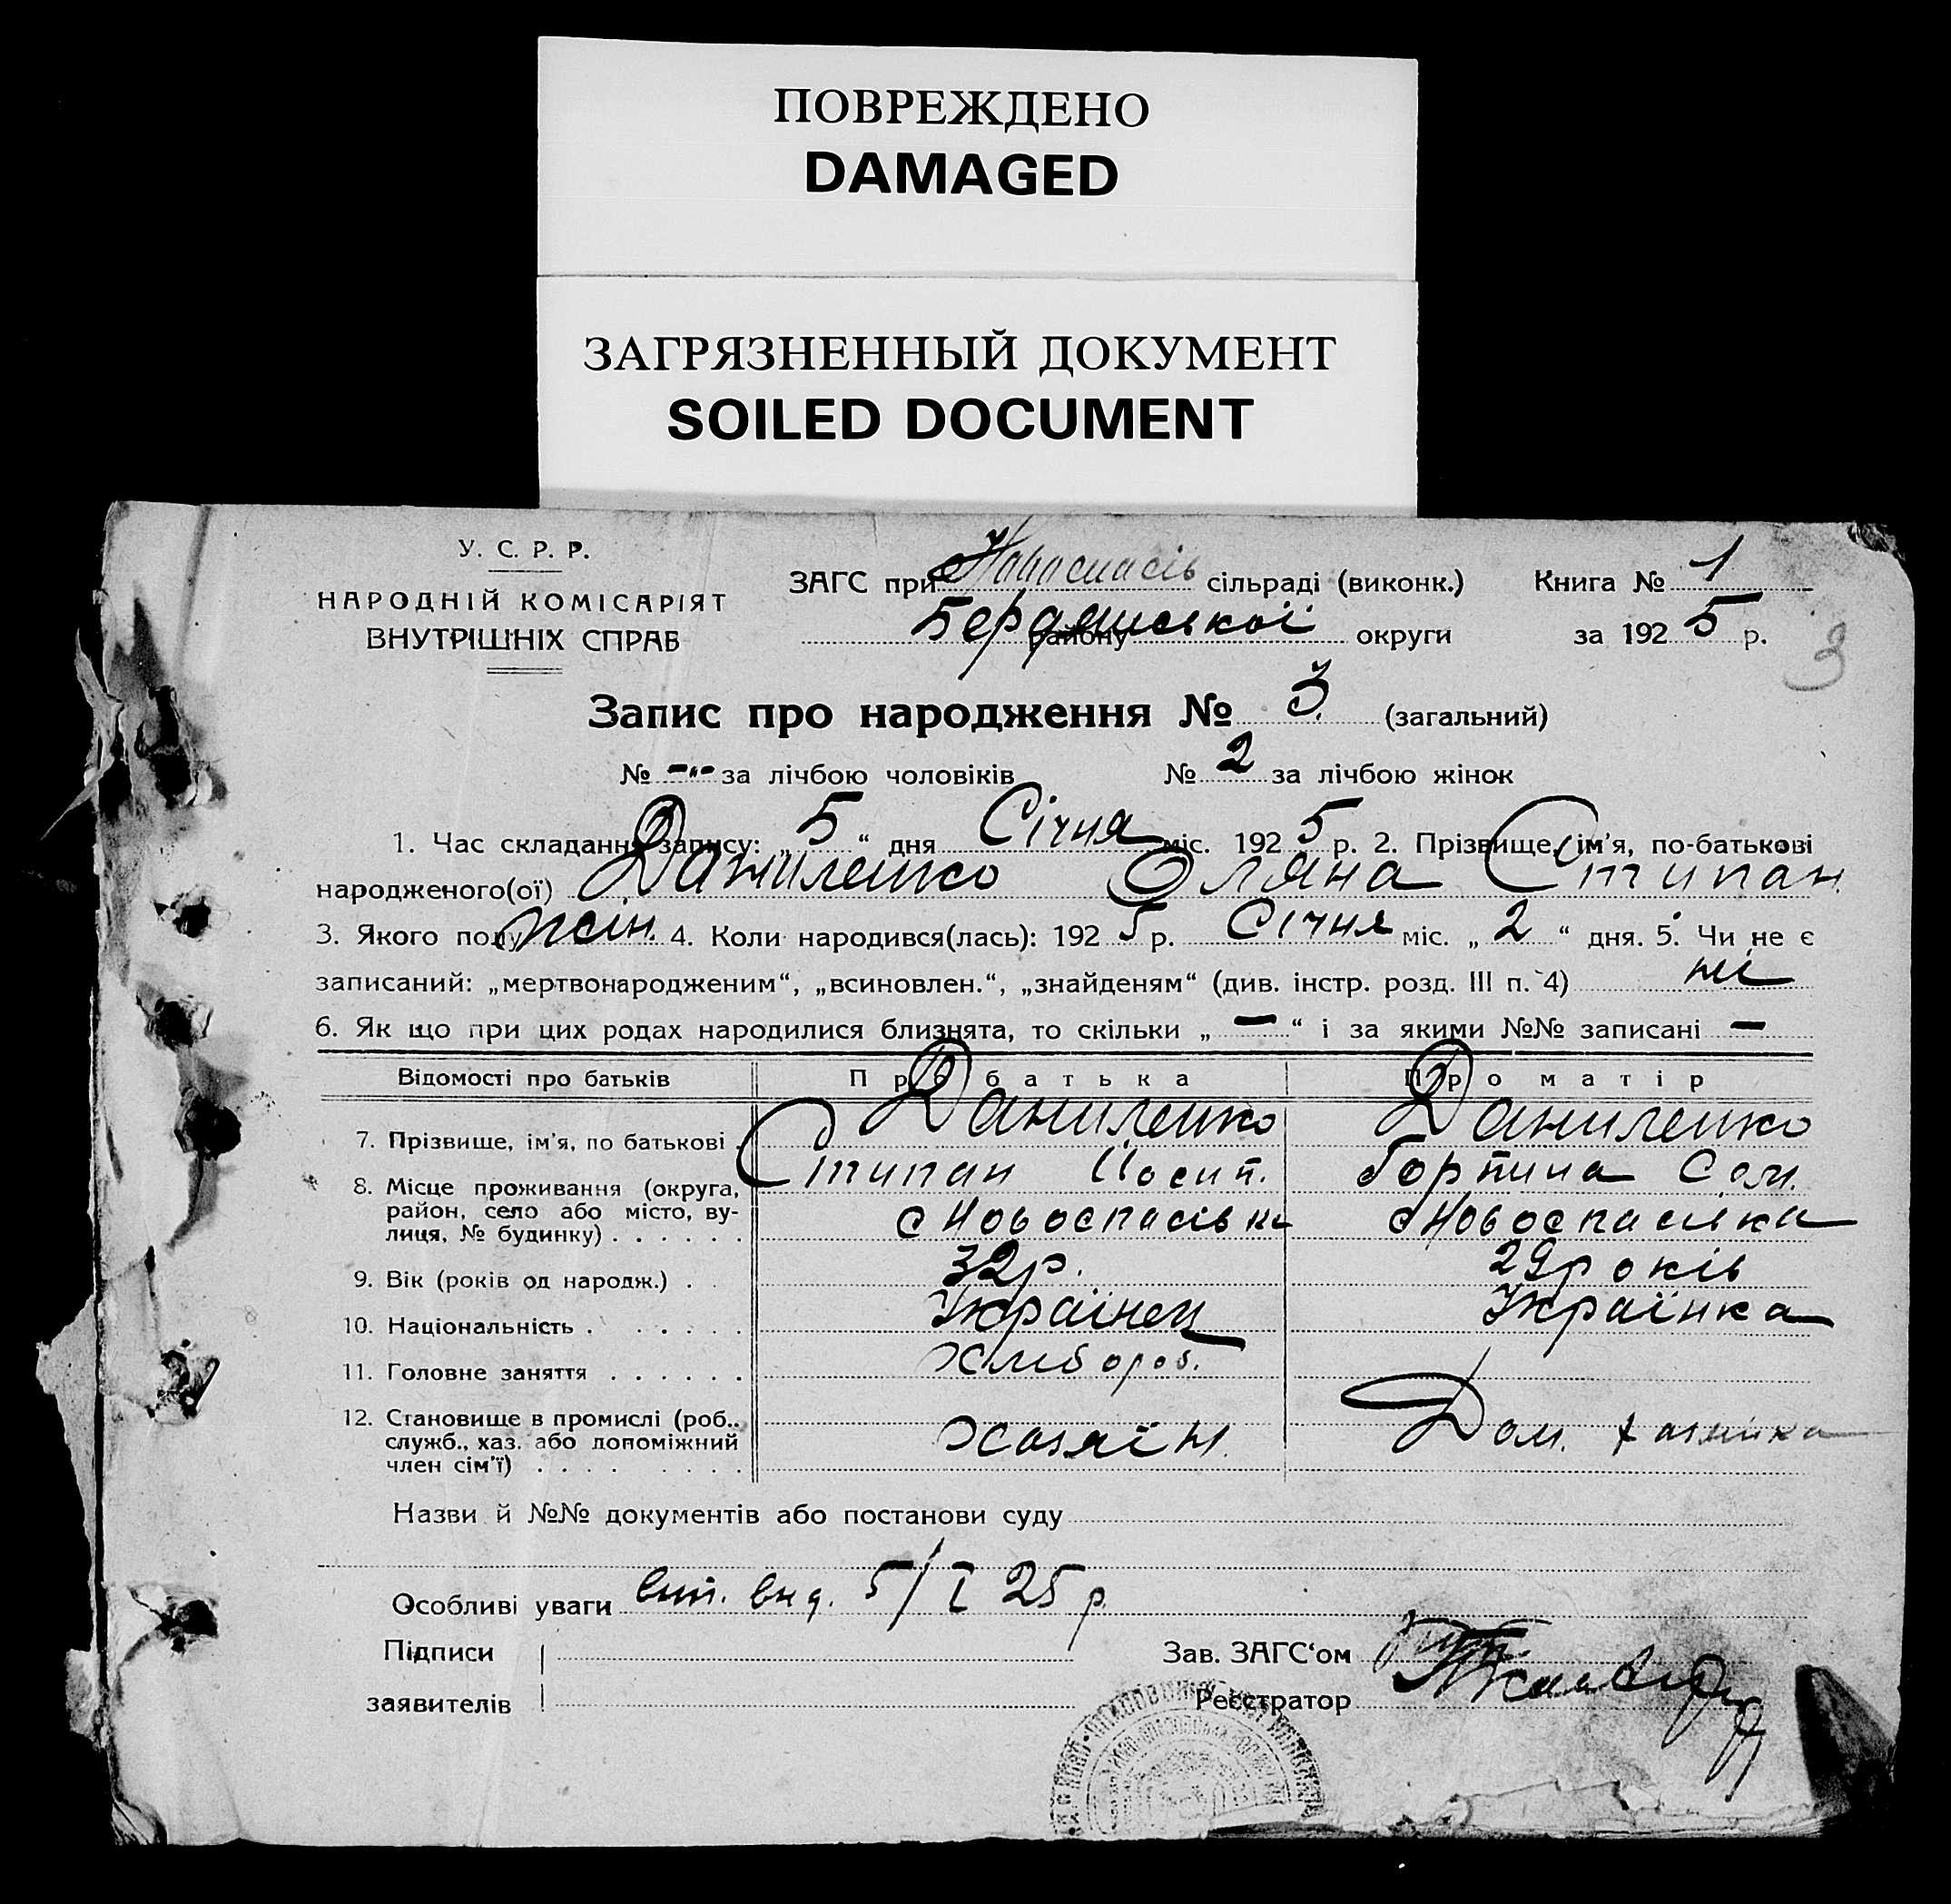 ПОВРЕЖДЕНО
DAMAGED
ЗАГРЯЗНЕННЫЙ ДОКУМЕНТ
SOILED DOCUMENT
У. С. Р. Р.
НАРОДНІЙ КОМІСАРІЯТ
ВНУТРІШНІХ СПРАВ
ЗАГС при Новоспасів сільраді (виконк.) Книга № 1
Бердянської району округи за 1925 р.
3
Запис про народження № 3. (загальний)
№ -„- за лічбою чоловіків № 2 за лічбою жінок
1. Час складання запису: „5“ дня Січня міс. 1925 р. 2. Прізвище, ім'я, по-батькові
народженого(ої) Даниленко Оляна Стипан.
3. Якого полу жін. 4. Коли народився(лась): 1925 р. Січня міс. „2“ дня. 5. Чи не є
записаний: „мертвонародженим“, „всиновлен.“, „знайденям“ (див. інстр. розд. III п. 4) ні
6. Як що при цих родах народилися близнята, то скільки „—“ і за якими №№ записані —
Відомості про батьків Про батька Про матір
7. Прізвище, ім'я, по батькові Даниленко Даниленко
Стипан Йосип. Горпина Сем.
8. Місце проживання (округа, район, село або місто, вулиця, № будинку) с Новоспасівка с Новоспасівка
9. Вік (років од народж.) 32 р. 29 років
10. Національність Українец Українка
11. Головне заняття Хлібороб.
12. Становище в промислі (роб., служб., хаз. або допоміжний член сім'ї) Хазяїн. Дом. хазяйка
Назви й №№ документів або постанови суду
Особливі уваги вип. вид. 5/I 25 р.
Підписи
заявителів
Зав. ЗАГС'ом
Реєстратор